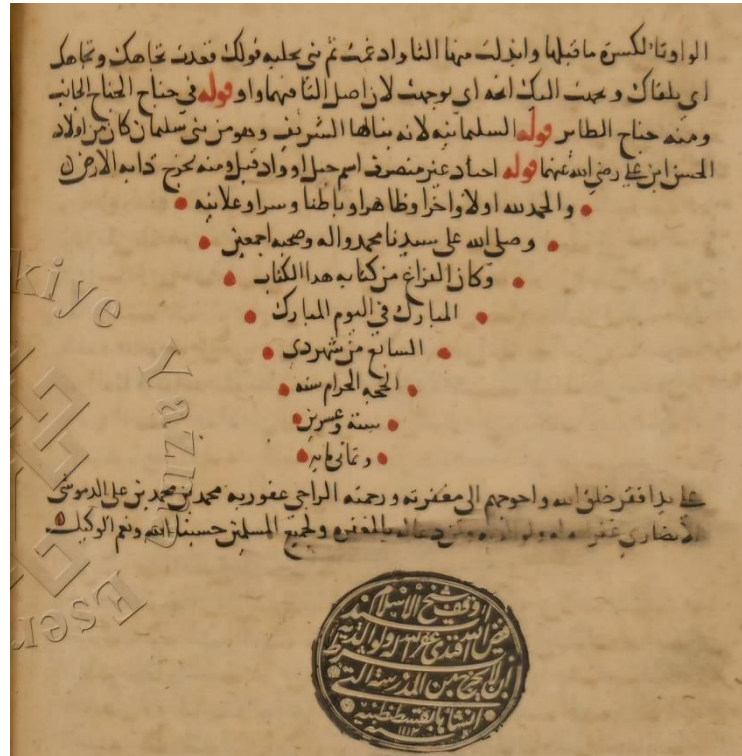 الواو تا لكسرة ما قبلها وابدلت منها التا وادغمت ثم بني عليه قولك قعدت تجاهك وتجاهك
اي تلقاك وتجهت اليك اتجه اي توجهت لان اصل التا فيهما واو قوله في جناح الجناح الجانب
ومنه جناح الطاير قوله السليمانيه لانه بناها الشريف وهو من بني سليمان كان من اولاد
الحسن ابن علي رضي الله عنهما قوله اجياد غير منصرف اسم جبل او واد قبل ومنه يخرج دابه الارض
والحمد لله اولا واخرا وظاهرا وباطنا وسرا وعلانيه
وصلى الله على سيدنا محمد واله وصحبه اجمعين
وكان الفراغ من كتابه هدا الكتاب
المبارك في اليوم المبارك
السابع من شهر دي
الحجه الحرام سنه
سته وعشرين
وثماني مايه
علي يد افقر خلق الله واحوجهم الى مغفرته ورحمته الراجي عفو ربه محمد بن محمد بن محمد بن علي
الانصاري غفر الله له ولوالديه بالمغفره ولجميع المسلمين حسبنا الله ونعم الوكيل
وقف شيخ الاسلام السيد
فيض الله افندي غفر الله له ولوالديه
بشرط ان لا يخرج من المدرسة التي
انشاها بقسطنطينية
سنه ١١١٢
kiye Yazma Eser